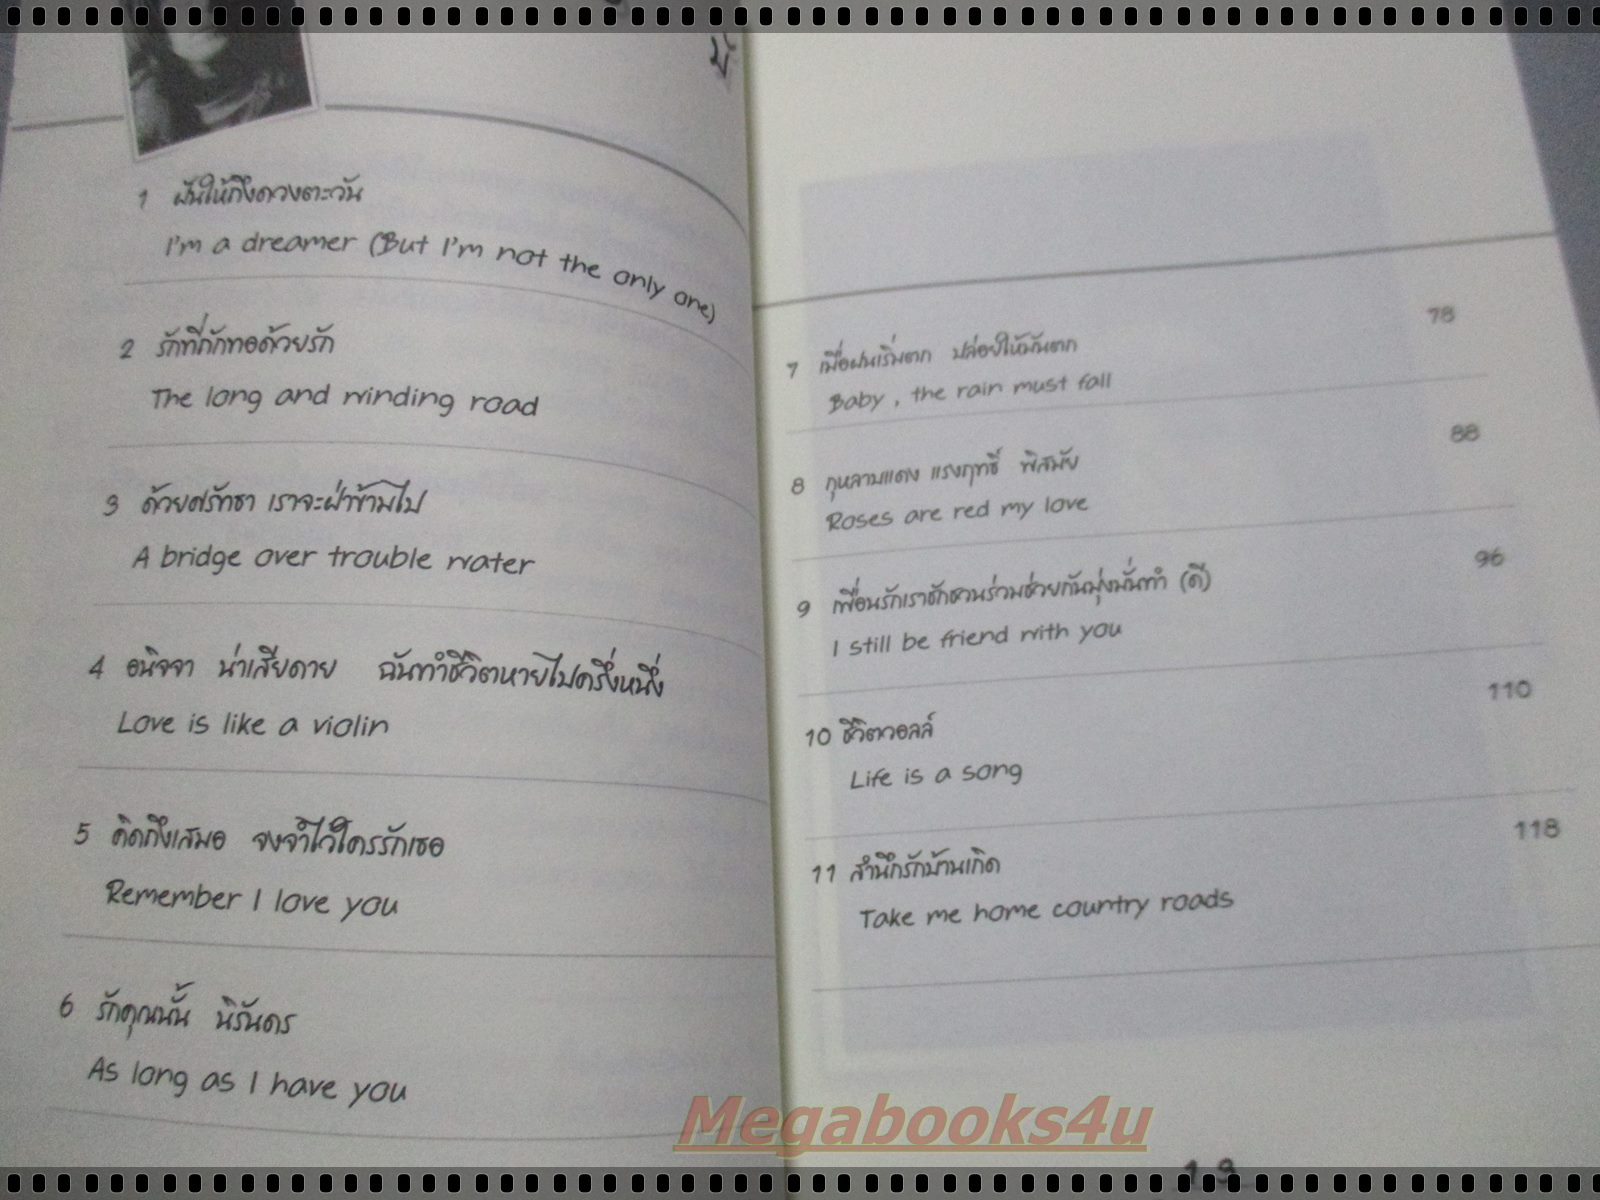 1 ฝันให้ถึงดวงตะวัน
I'm a dreamer (But I'm not the only one)
2 รักที่ถักทอด้วยรัก
The long and winding road
3 ด้วยศรัทธา เราจะฝ่าข้ามไป
A bridge over trouble water
4 อนิจจา น่าเสียดาย ฉันทำชีวิตหายไปครึ่งหนึ่ง
Love is like a violin
5 คิดถึงเสมอ จงจำไว้ใครรักเธอ
Remember I love you
6 รักคุณนั้น นิรันดร
As long as I have you
78
7 เมื่อฝนเริ่มตก ปล่อยให้มันตก
Baby, the rain must fall
88
8 กุหลาบแดง แรงฤทธิ์ พิสมัย
Roses are red my love
96
9 เพื่อนรักเราชักชวนร่วมช่วยกันมุ่งมั่นทำ (ดี)
I still be friend with you
110
10 ชีวิตวอลล์
Life is a song
118
11 สำนึกรักบ้านเกิด
Take me home country roads
Megabooks4u